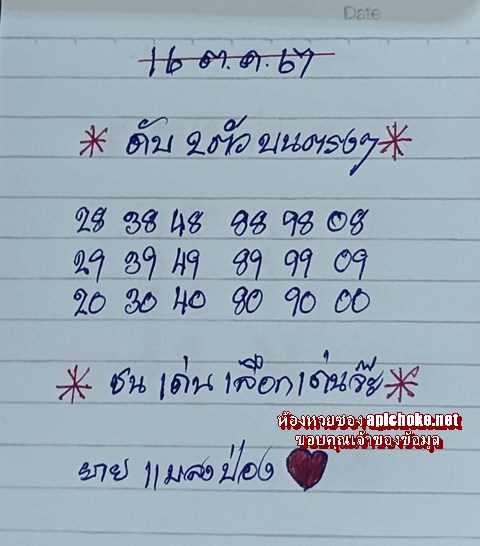 Date
16 ต.ค. 67
* ดับ 2ตัว บนตรงๆ *
28 38 48 88 98 08
29 39 49 89 99 09
20 30 40 80 90 00
* ชน เด่น เลือก เด่นจ๊ะ *
ห้องหวยซอง apichoke.net
ขอบคุณเจ้าของข้อมูล
นาย แมลงป่อง